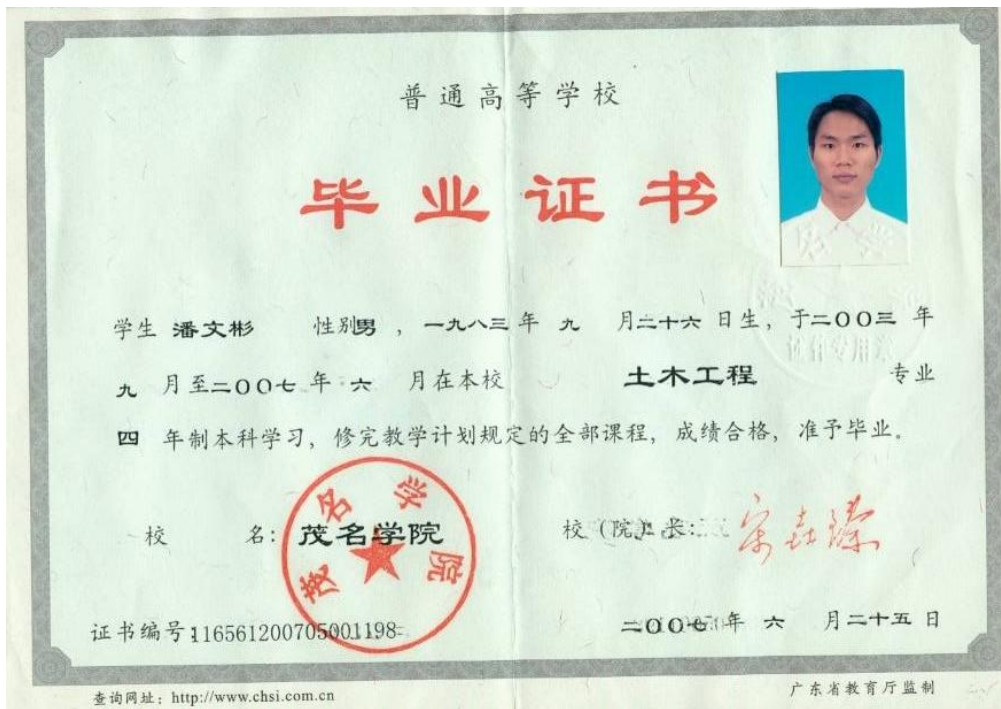 普通高等学校
毕业证书
学生 潘文彬 性别男，一九八三年 九 月二十六日生，于二00三 年
九 月至二00七 年 六 月在本校 土木工程 专业
四 年制本科学习，修完教学计划规定的全部课程，成绩合格，准予毕业。
校 名：茂名学院
茂名学院
校（院）长：
证书编号：116561200705001198
二00七年 六 月二十五日
查询网址：http://www.chsi.com.cn
广东省教育厅监制